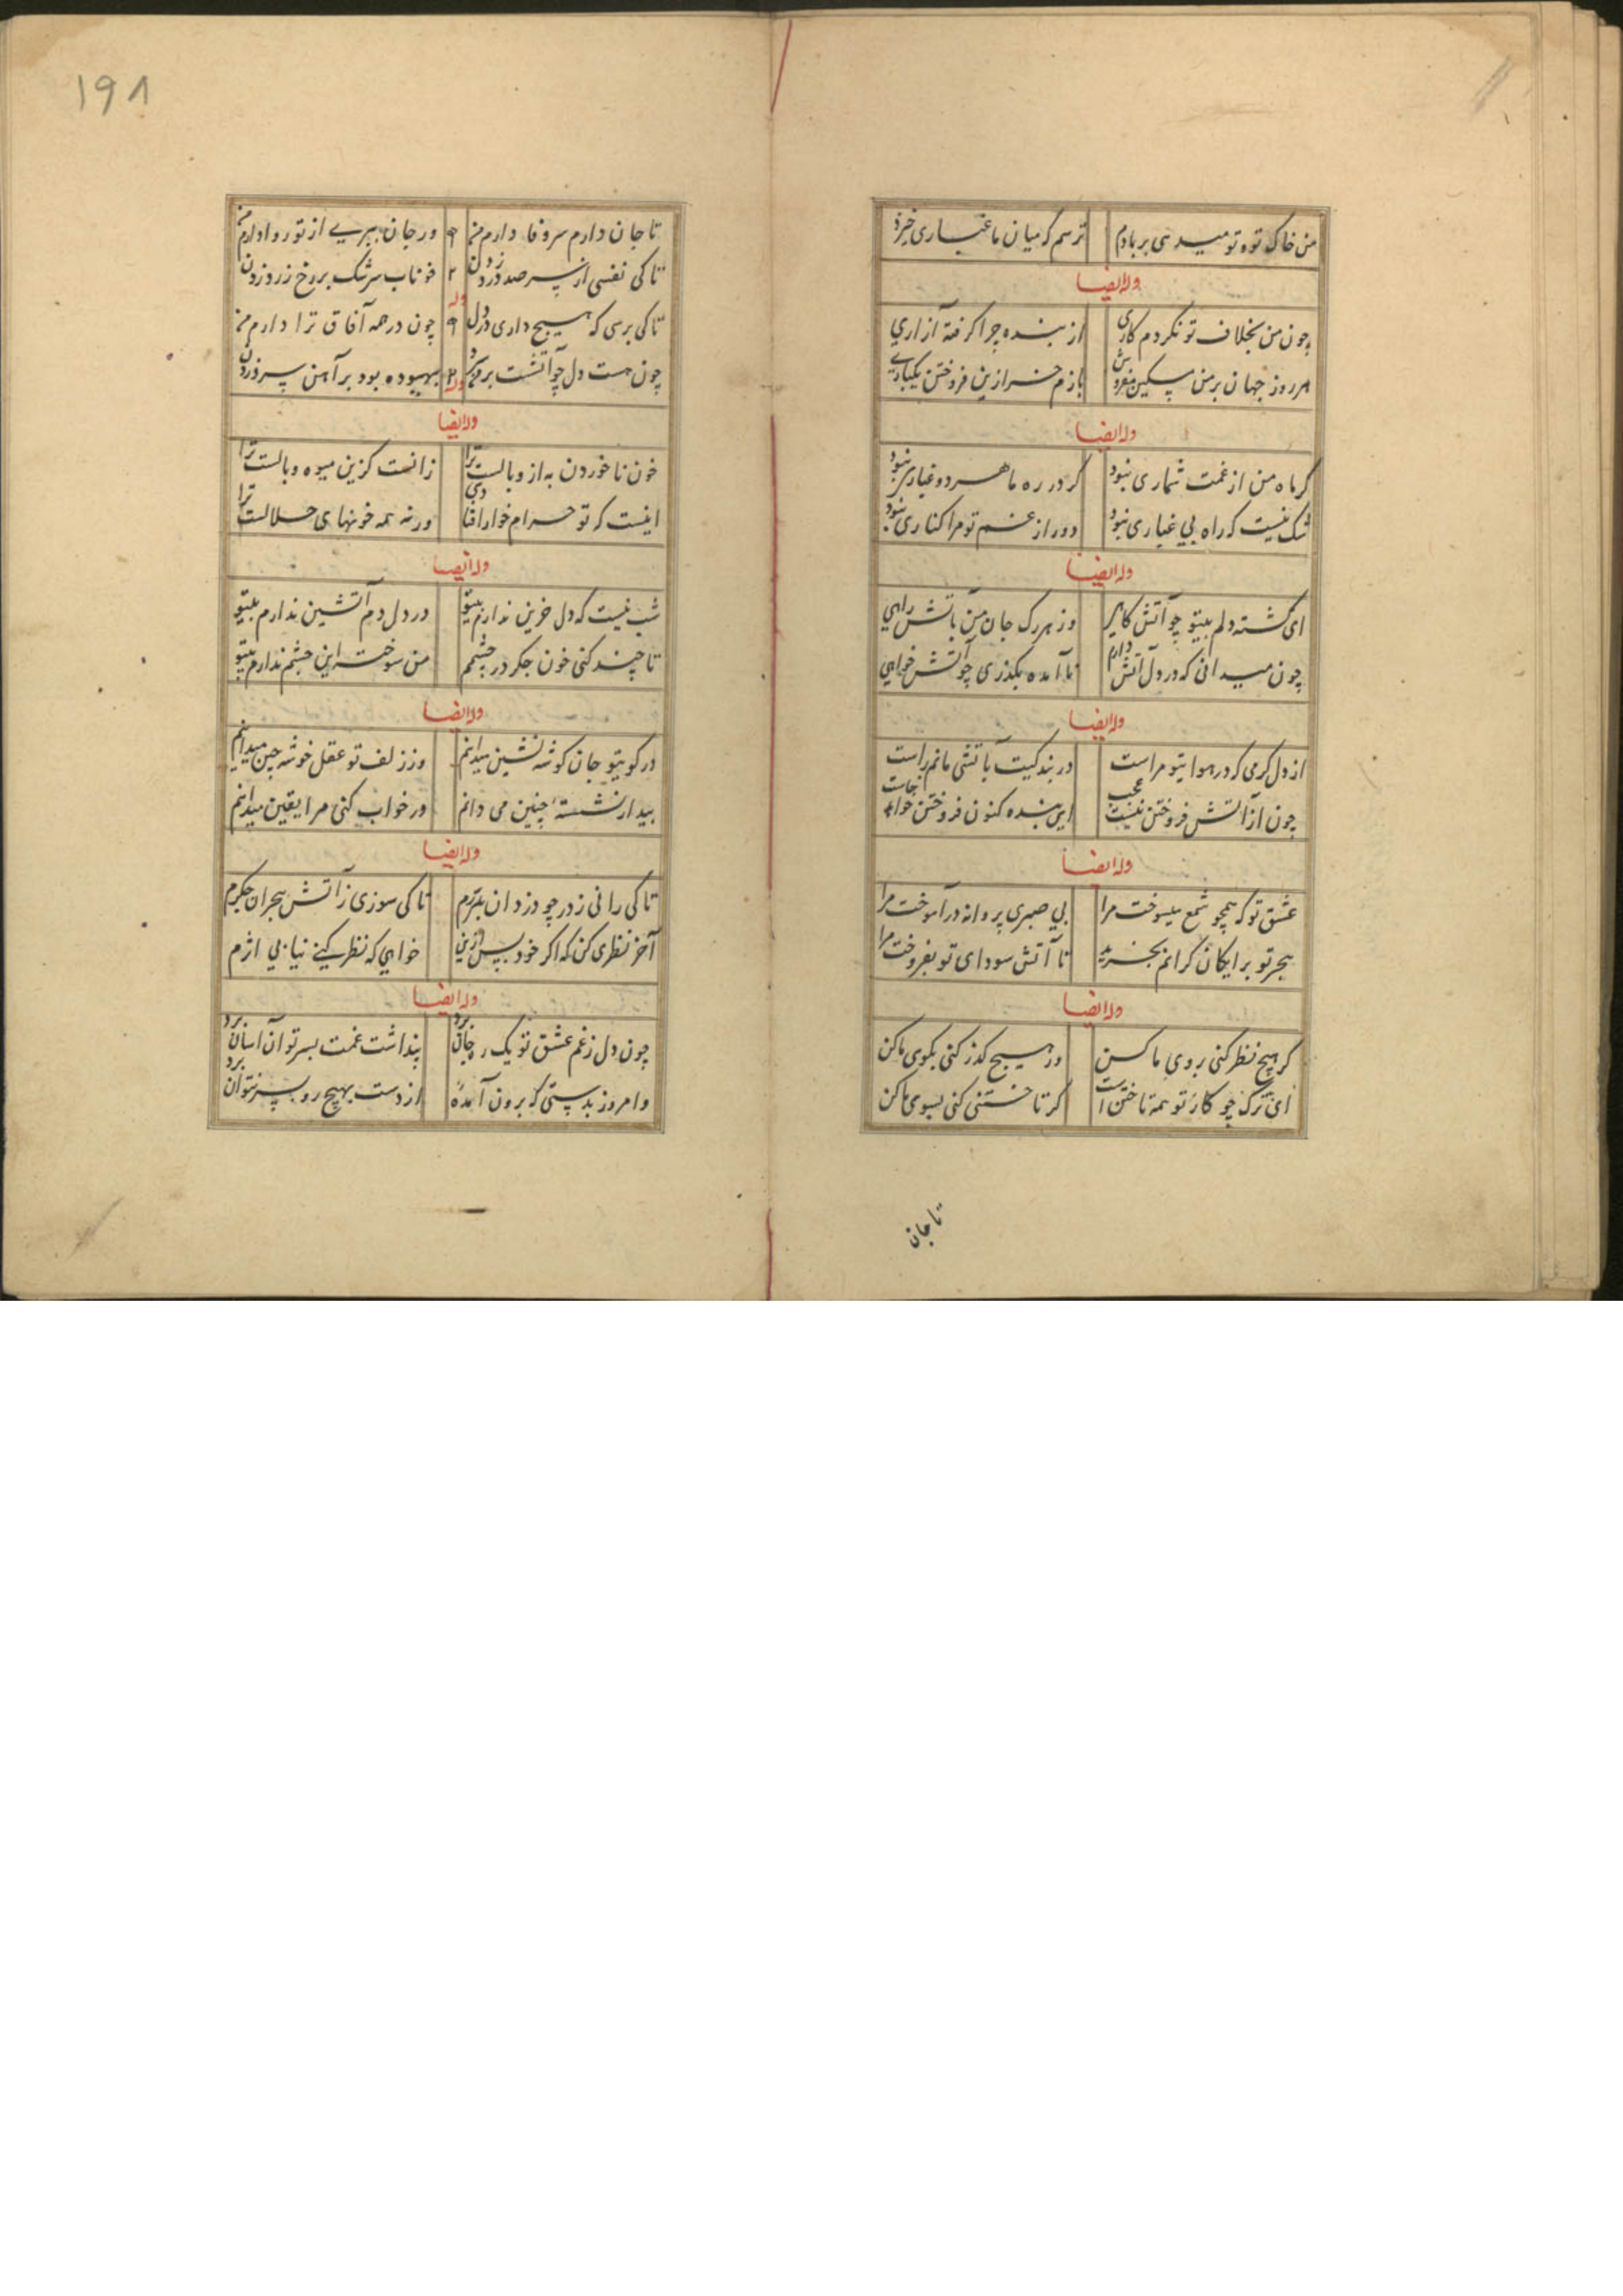 من خاک توه تو میدهی بر بادم
ترسم که میان ما غباری خیزد
وله ایضا
چون من بخلاف تو نکردم کاری
از بنده چرا گرفته آزاری
هر روز جهان بر من مسکین مفروش
بازم خر ازین فروختن یکباری
وله ایضا
گر ماه من از غمت شماری نبود
گر در ره ما هر دو غباری نبود
شک نیست که راه بی غباری نبود
دور از غم تو مرا کناری نبود
وله ایضا
ای گشته دلم بیتو چو آتش گاهی
وز هر رگ جان من بآتش راهی
چون میدانی که در دل آتش دارم
نا آمده بگذری چو آتش خواهی
وله ایضا
از دل گرمی که در هوا یتو مراست
در بندگیت بآتشی مانم راست
چون از آتش فروختن نیست عجب
این بنده کنون فروختن خواهد
وله ایضا
عشق تو که همچو شمع میسوخت مرا
بی صبری پروانه در آموخت مرا
هجر تو برایگان گرانم بخرید
تا آتش سودای تو بفروخت مرا
وله ایضا
گر هیچ نظر کنی بروی ما کن
ور هیچ گذر کنی بکوی ما کن
ای ترک چو کار تو همه تاختن است
گر تاختنی کنی بسوی ما کن
تا جان
۱۹۸
تا جان دارم سر وفا دارم من
ور جان ببری از تو روا دارم من
تا کی نفسی از سر صد درد زدن
خوناب سرشک بر رخ زرد زدن
وله
تا کی پرسی که هیچ داری در دل
چون در همه آفاق ترا دارم من
چون هست دل چو آتشت
بیهوده بود بر آهن سرد زدن
وله ایضا
خون نا خوردن به از وبالست ترا
زانست کزین میوه وبالست ترا
اینست که تو حرام خوار افتادی
ورنه همه خونهای حلالست ترا
وله ایضا
شب نیست که دل حزین ندارم بیتو
در دل دم آتشین ندارم بیتو
تا چند کنی خون جگر در چشمم
من سوخته این چشم ندارم بیتو
وله ایضا
در کویتو جان گوشه نشین میدانم
وز زلف تو عقل خوشه چین میدانم
بیدار نشسته چنین می دانم
ور خواب کنی مرا یقین میدانم
وله ایضا
تا کی رانی ز در چو دزدان بدرم
تا کی سوزی ز آتش هجران جگرم
آخر نظری کن که اگر خود پس ازین
خواهی که نظر کنی نیابی اثرم
وله ایضا
چون دل ز غم عشق تو یک ره جان برد
پنداشت غمت بسر توان آسان برد
وامروز بدستی که برون آمده
از دست بهیچ رو بسر نتوان برد